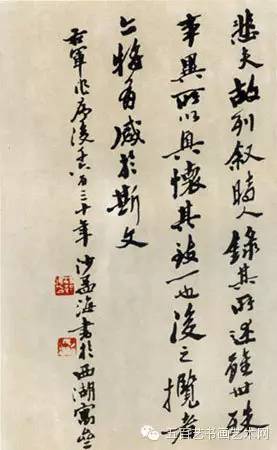 悲夫故列叙時人録其所述雖世殊
事異所以興懷其致一也後之攬者
亦将有感於斯文
右軍作序後千六百三十年沙孟海書於西湖寓楼
五百艺书画艺术网